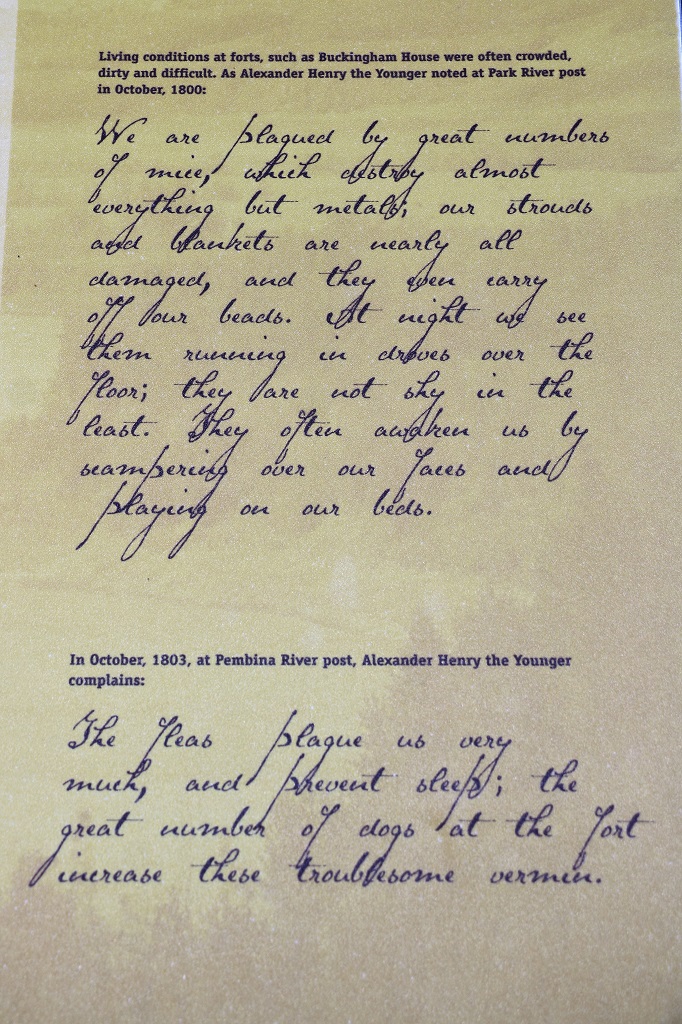 Living conditions at forts, such as Buckingham House were often crowded,
dirty and difficult. As Alexander Henry the Younger noted at Park River post
in October, 1800:
We are plagued by great numbers
of mice, which destroy almost
everything but metals; our strouds
and blankets are nearly all
damaged, and they even carry
off our beads. At night we see
them running in droves over the
floor; they are not shy in the
least. They often awaken us by
scampering over our faces and
playing on our beds.
In October, 1803, at Pembina River post, Alexander Henry the Younger
complains:
The fleas plague us very
much, and prevent sleep; the
great number of dogs at the fort
increase these troublesome vermin.